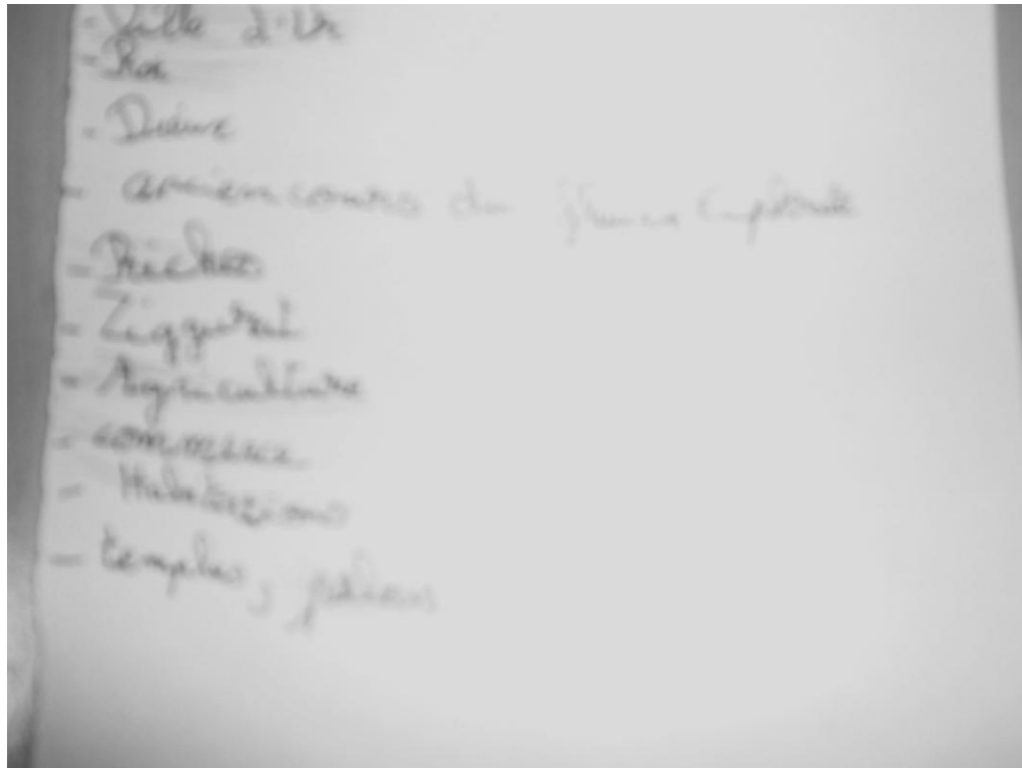 - Ville d'Ur
- Roi
- Divine
- ancien cours du fleuve Euphrate
- Riches
- Ziggurat
- Agriculture
- commerce
- Habitations
- temples, palais